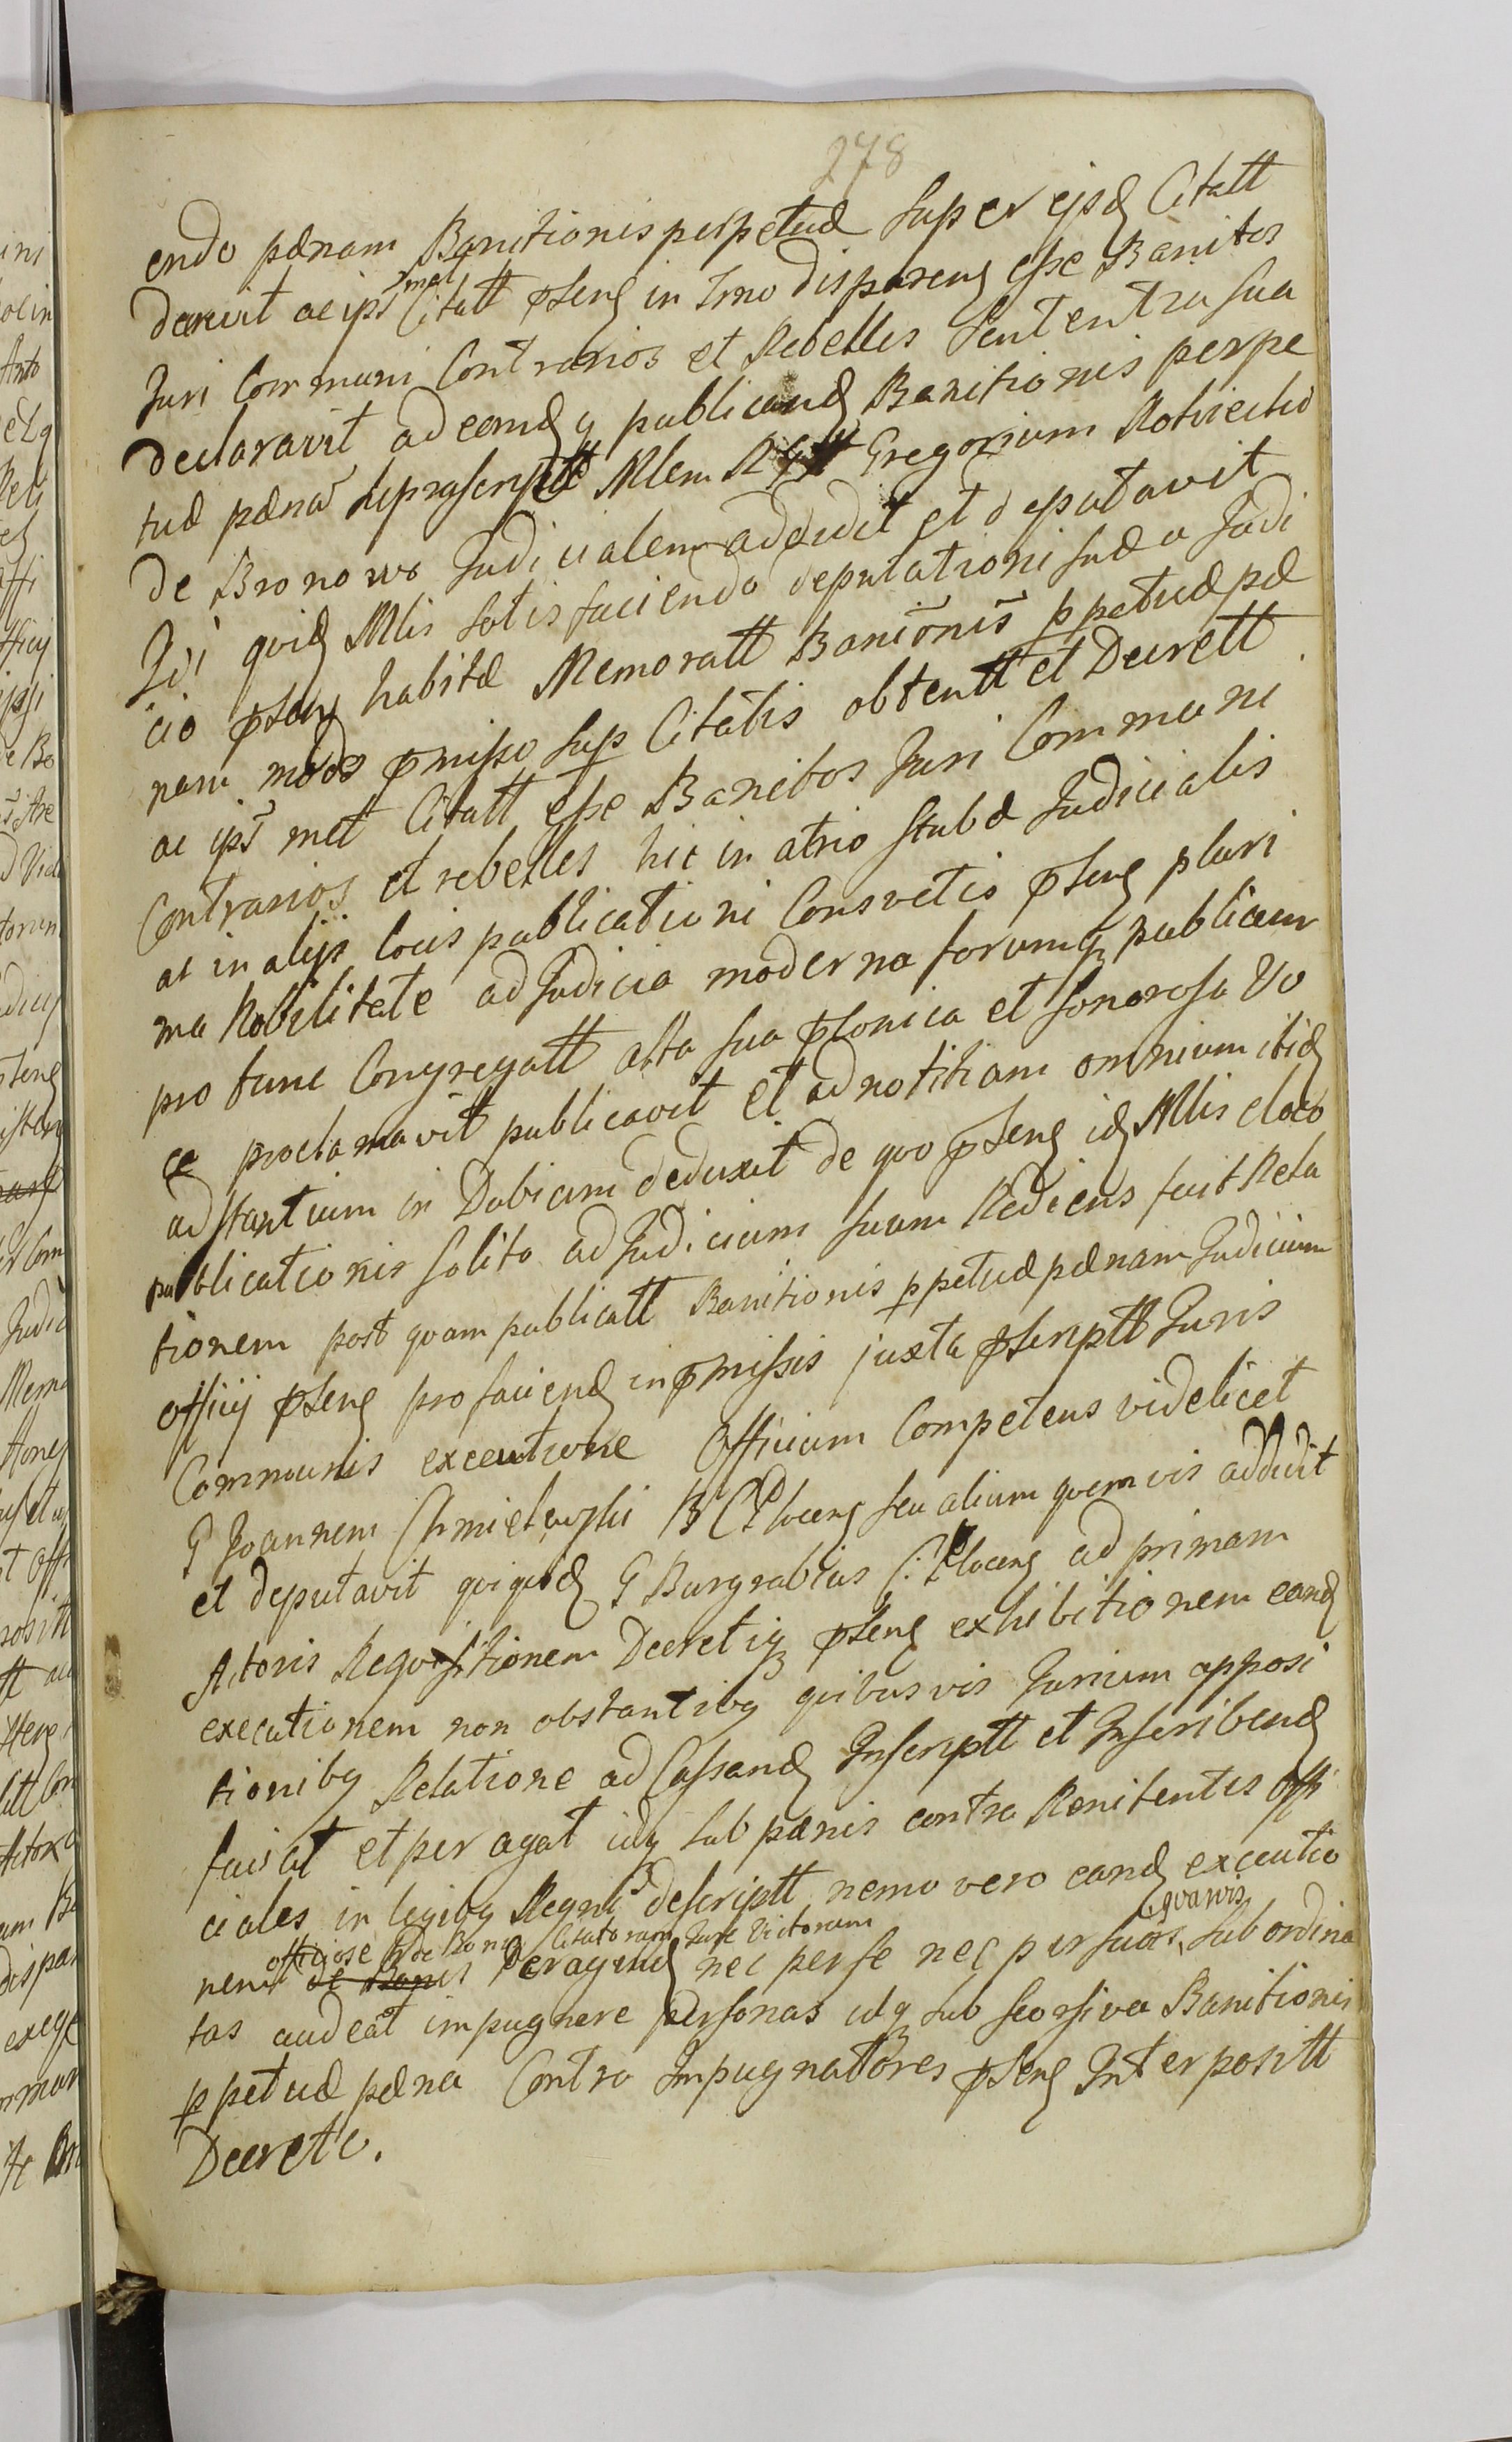 278
endo pænam Banitionis perpetuæ super ejsd Citatt
decrevit ac ipsmet Citatt pseng in Imo dispareng esse Banitos
Juri Communi Contrarios et Rebelles Sententia sua
declaravit ad eamdq publicand Banitionis perpe
tuæ pænã suprascriptt Mlem Gregorium Kotwicki
de Bronowo Judicialem addidit et deputavit
Qui quid Mlis satisfaciendo deputationi suæ a Judi
cio pseng habitæ Memoratt Baniõnis ppetuæ pæ
nam modo pmisso sup Citatis obtentt et Decrett
ac ips met Citatt esse Banitos Juri Communi
Contrarios et rebelles hic in atrio stubæ Judicialis
ac in alijs locis publicationi Consvetis pseng pluri
ma Nobilitate ad Judicia moderna forumq publicum
pro tunc Congregatt alta sua ptonica et sonorosa Vo
ce proclamavit publicavit et ad notitiam omnium itid
adstantium in Dubium deduxit de quo pseng id Mlis eloco
publicationis solito ad Judicium suum Rediens fecit Rela
tionem post quam publicatt Banitionis ppetuæ pænam Judicium
officij pseng pro faciend in pmissis juxta pscriptt Juris
Communis executione Officium Competens videlicet
G Joannem Chmielewski B C Plocens seu alium quemvis addidit
et deputavit qui quid G Burgrabius C. Plocens ad primam
Actoris Requisitionem Decretiq pseng exhibitionem eand
executionem non obstantibq quibusvis Jurium opposi
tionibq Relatione ad Cassand Inscriptt et Inscribend
faciat et peragat idq sub pænis contra Renitentes offi
ciales in legibq Regni descriptt nemo vero eand executio
officiose de Bonis Citatorum Jure Victorum
nem de Bonis Peragend nec per se nec per suas quasvis sub ordina
tas audeat impugnere personas idq sub seorsiva Banitionis
ppetuæ pæna Contra Impugnatores pseng Interpositt
Decreto.